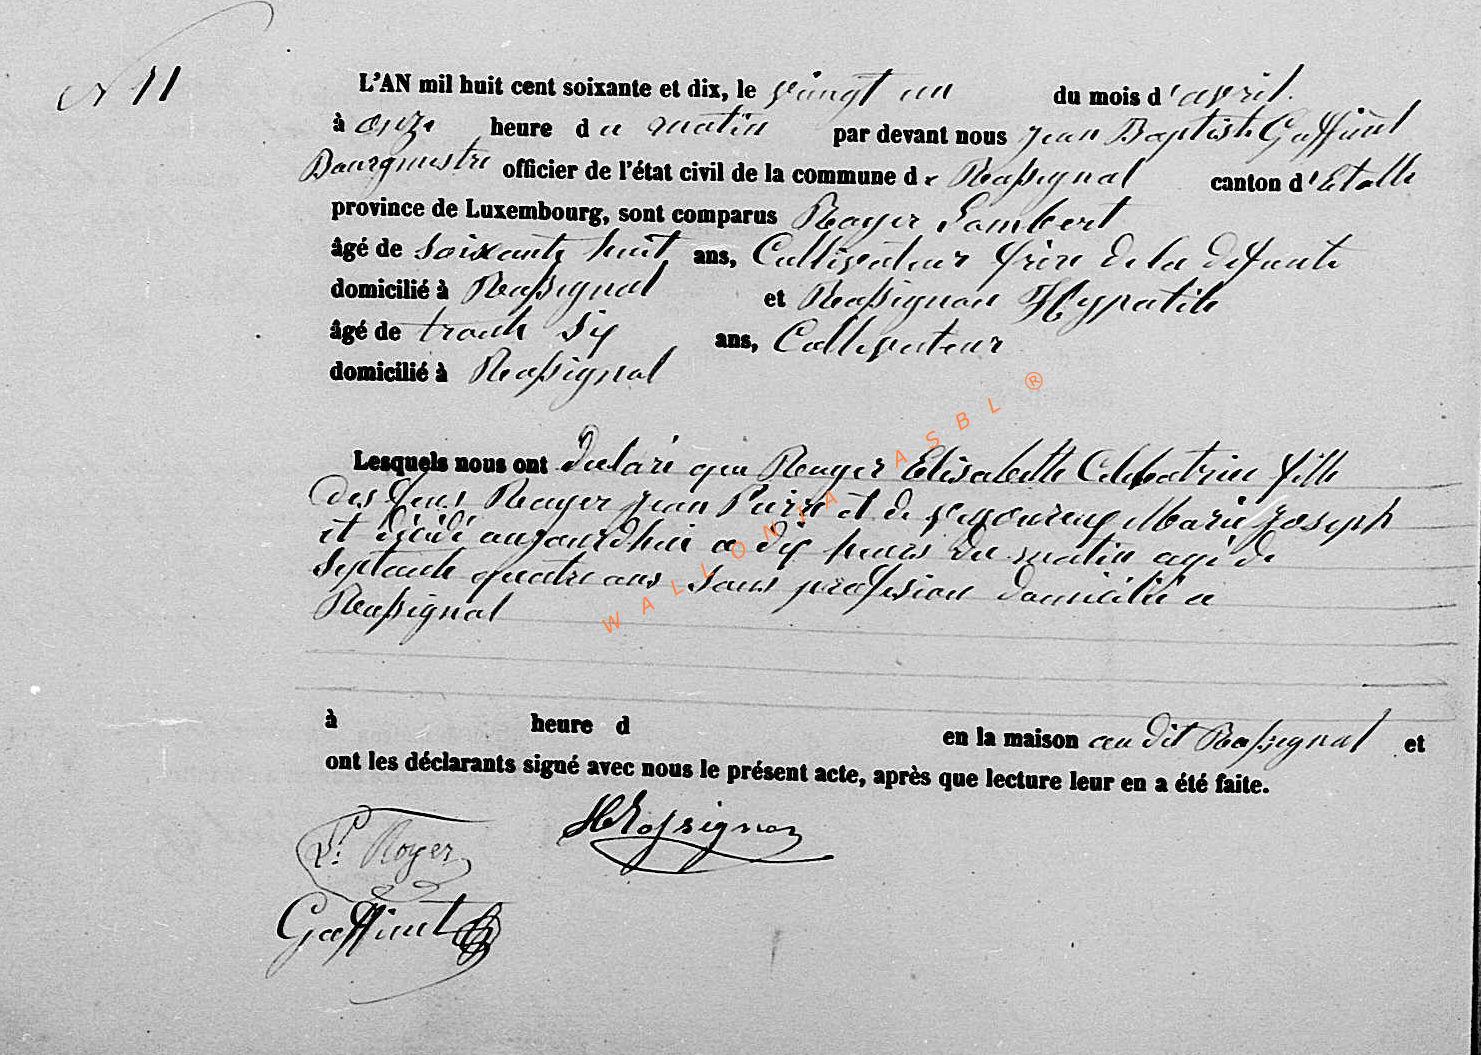 N 11
L'AN mil huit cent soixante et dix, le vingt un du mois d'avril.
à onze heure du matin par devant nous Jean Baptiste Goffinet
Bourgmestre officier de l'état civil de la commune de Rossignol canton d'Etalle
province de Luxembourg, sont comparus Royer Lambert
âgé de soixante huit ans, Cultivateur frère de la defunte
domicilié à Rossignol et Rossignon Hypatite
âgé de trente six ans, Cultivateur
domicilié à Rossignol
Lesquels nous ont declaré que Royer Elisabeth Celibatrice fille
des feus Royer Jean Pierre et de Marie Joseph
et décédé aujourdhui a dix heures du matin agé de
septante quatre ans sans profession domicilié a
Rossignol
à heure d en la maison au dit Rossignol et
ont les déclarants signé avec nous le présent acte, après que lecture leur en a été faite.
HRossignon
L. Royer
Goffinet
WALLONIA ASBL ®